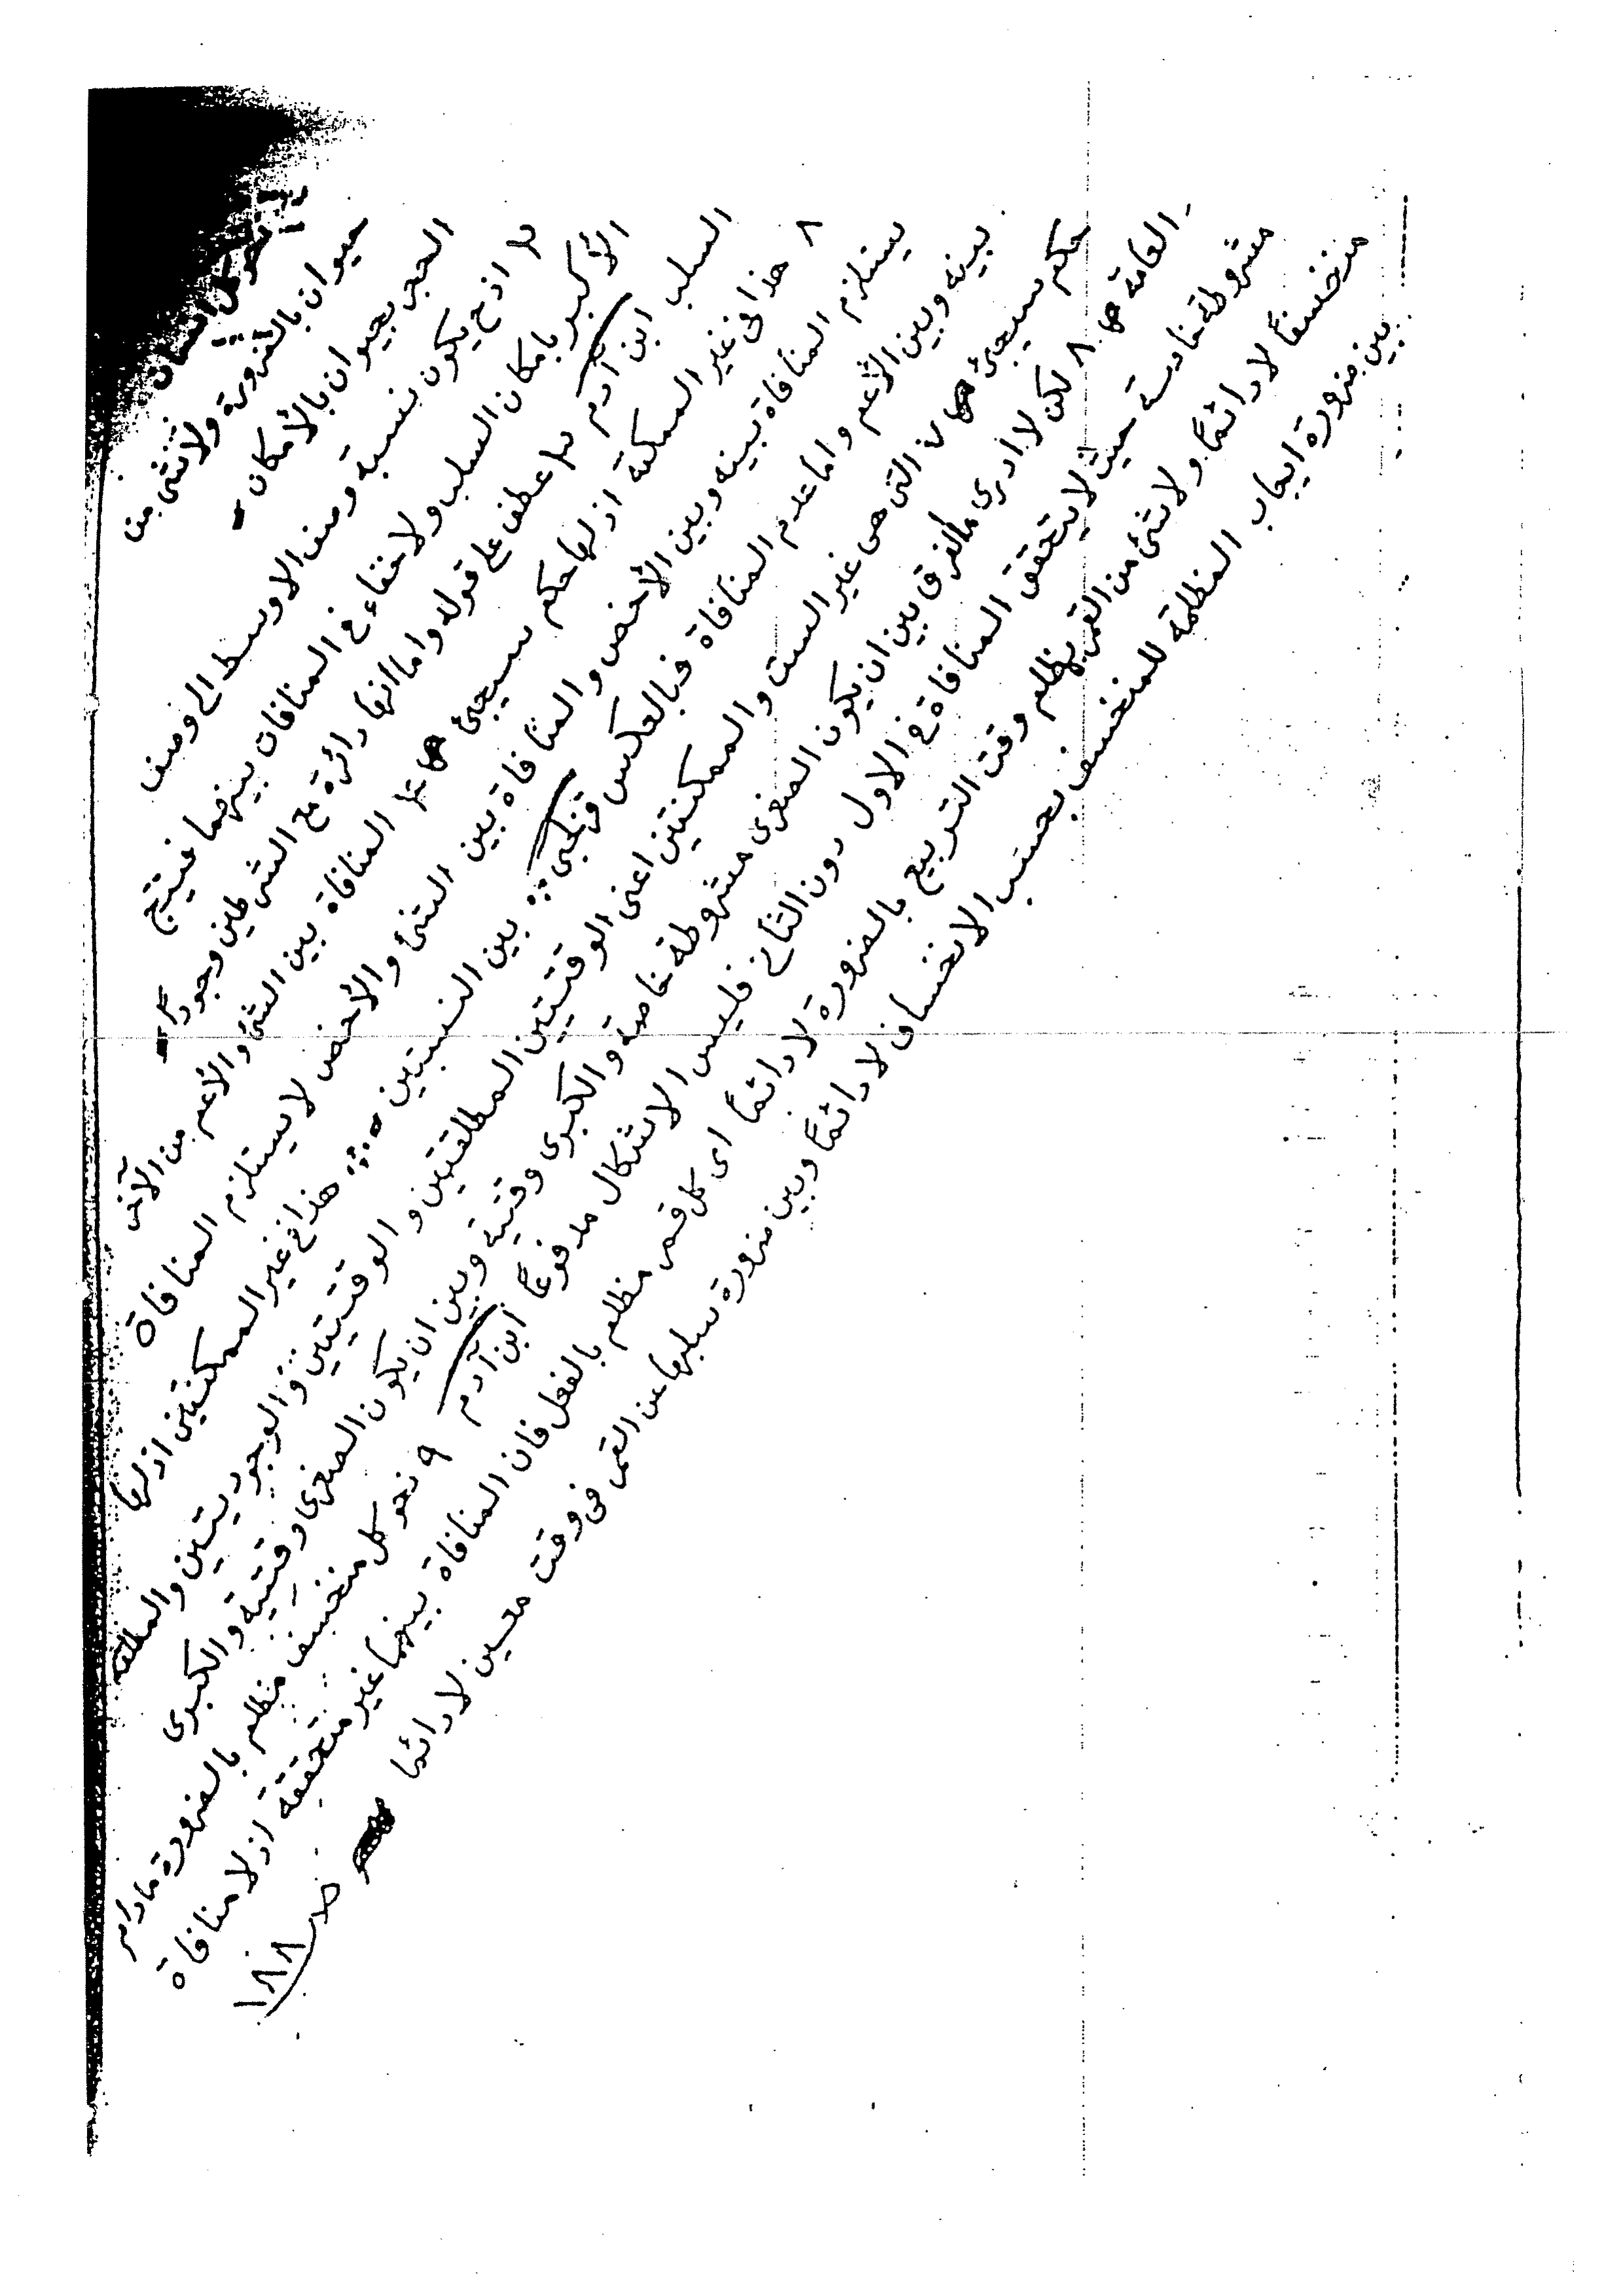 نحو كل انسان
حيوان بالضرورة ولا شئ من
الحجر بحيوان بالأمكان
اذ ح يكون نسبة وصف الاوسط الى وصف
الأكبر بامكان السلب ولا خفاء في المنافات بينهما فينتج
السلب ابن آدم عطف على قوله واما انها دائرة مع الشرطين وجودًا
٨ هذا في غير الممكنة اذ لها حكم سيجئ المنافاة بين الشئ والأعم من الآخر
يستلزم المنافاة بينه وبين الأخص والمنافاة بين الشئ والأخص لا يستلزم المنافاة
بينه وبين الأعم واما عدم المنافاة فبالعكس قزلجى بين النسبتين هذا في غير الممكنتين اذ لها
حكم سيجئ ن التى هى غير الست والممكنتين اعنى الوقتيتين المطلقتين و الوقتيتين والوجوديتين والمطلقة
العامة ٨ لكن لا ادرى ما الفرق بين ان يكون الصغرى مشروطة خاصة والكبرى وقتية وبين ان يكون الصغرى وقتية والكبرى
مشروطة خاصة حيث لا يتحقق المنافاة في الاول دون الثاني فليس الاشكال مدفوعًا ابن آدم ٩ نحو كل منخسف مظلم بالضرورة مادام
منخسفًا لا دائمًا ولا شئ من القمر بمظلم وقت التربيع بالضرورة لا دائمًا اى كل قمر مظلم بالفعل فان المنافاة بينهما غير متحققة اذ لا منافاة
بين ضرورة ايجاب المظلمة للمنخسف بحسب الانخساف لا دائمًا وبين ضرورة سلبها عن القمر فى وقت معين لا دائما
١٨٨